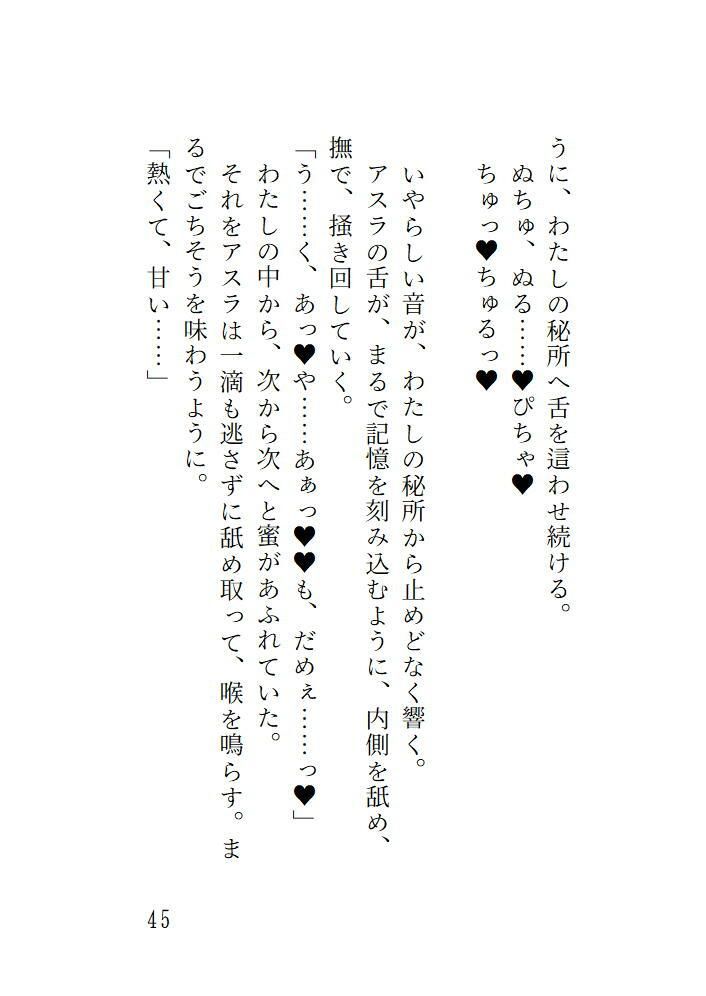 うに、わたしの秘所へ舌を這わせ続ける。
ぬちゅ、ぬる……♥ぴちゃ♥
ちゅっ♥ちゅるっ♥
いやらしい音が、わたしの秘所から止めどなく響く。
アスラの舌が、まるで記憶を刻み込むように、内側を舐め、
撫で、掻き回していく。
「う……く、あっ♥や……あぁっ♥♥も、だめぇ……っ♥」
わたしの中から、次から次へと蜜があふれていた。
それをアスラは一滴も逃さずに舐め取って、喉を鳴らす。ま
るでごちそうを味わうように。
「熱くて、甘い……」
45